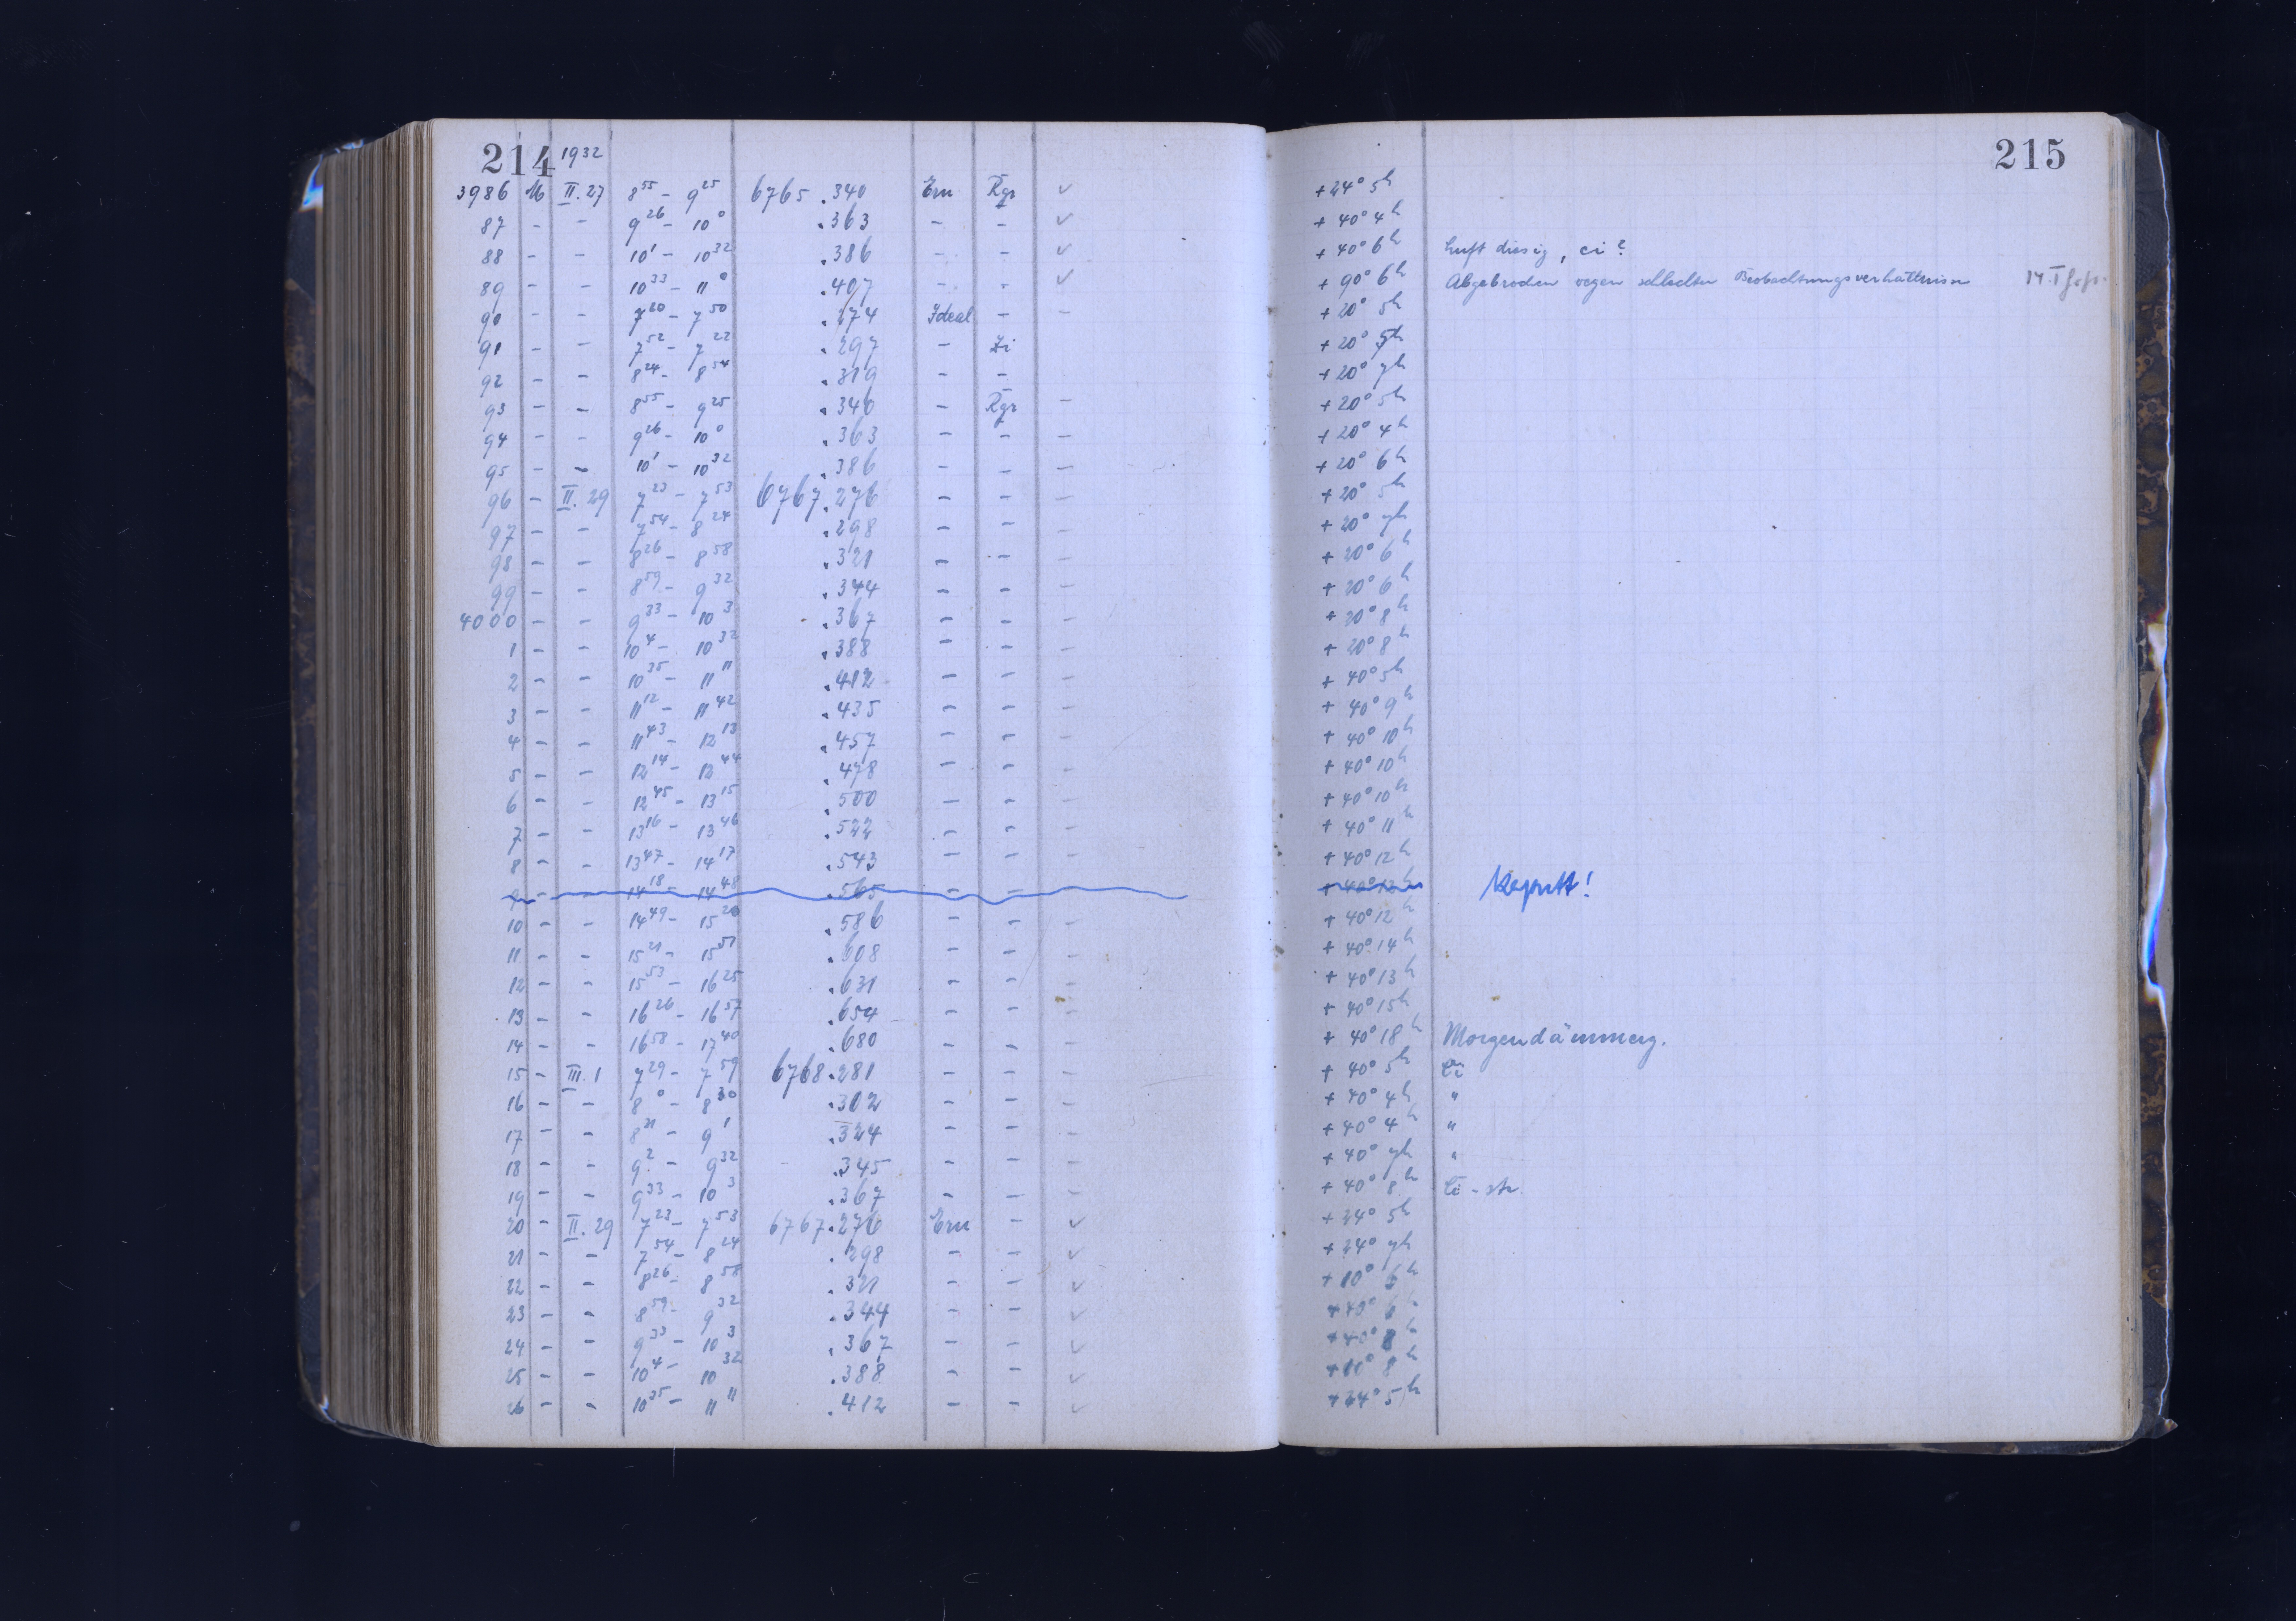 214 1932 215
3986 M II. 27 8 55 - 9 25 6765 .340 Ern Rgr ✓ + 24° 5h
87 - - 9 26 - 10 0 .363 - - ✓ + 40° 4h
88 - - 10 1 - 10 32 .386 - - ✓ + 40° 6h Luft diesig, ci?
89 - - 10 33 - 11 0 .407 - - ✓ + 90° 6h Abgebrochen wegen schlechter Beobachtungsverhältnisse
90 - - 7 20 - 7 50 .274 Ideal - - + 20° 5h
91 - - 7 52 - 7 22 .297 - Zi + 20°
92 - - 8 24 - 8 54 .319 - - + 20° 7h
93 - - 8 55 - 9 25 .340 - Rgr - + 20° 5h
94 - - 9 26 - 10 0 .363 - - - + 20° 4h
95 - - 10 1 - 10 32 .386 - - - + 20° 6h
96 - II. 29 7 23 - 7 53 6767.276 - - - + 20° 5h
97 - - 7 54 - 8 24 .298 - - - + 20° 7h
98 - - 8 26 - 8 58 .321 - - - + 20° 6h
99 - - 8 59 - 9 32 .344 - - - + 20° 6h
4000 - - 9 33 - 10 3 .367 - - - + 20° 8h
1 - - 10 4 - 10 32 .388 - - - + 20° 8h
2 - - 10 35 - 11 11 .412 - - - + 40° 5h
3 - - 11 12 - 11 42 .435 - - - + 40° 9h
4 - - 11 43 - 12 13 .457 - - - + 40° 10h
5 - - 12 14 - 12 44 .478 - - - + 40° 10h
6 - - 12 45 - 13 15 .500 - - - + 40° 10h
7 - - 13 16 - 13 46 .522 - - - + 40° 11h
8 - - 13 47 - 14 17 .543 - - - + 40° 12h
9 - - 14 18 - 14 48 .565 - - - + 40° 12h Kaputt!
10 - - 14 49 - 15 20 .586 - - - + 40° 12h
11 - - 15 21 - 15 51 .608 - - - + 40° 14h
12 - - 15 53 - 16 25 .631 - - - + 40° 13h
13 - - 16 26 - 16 57 .654 - - - + 40° 15h
14 - - 16 58 - 17 40 .680 - - - + 40° 18h Morgendämmerg.
15 - III. 1 7 29 - 7 59 6768.281 - - - + 40° 5h Ci
16 - - 8 0 - 8 30 .302 - - - + 40° 4h "
17 - - 8 31 - 9 1 .324 - - - + 40° 4h "
18 - - 9 2 - 9 32 .345 - - - + 40° 7h "
19 - - 9 33 - 10 3 .367 - - - + 40° 8h Ci - str
20 - II. 29 7 23 - 7 53 6767.276 Ern - ✓ + 24° 5h
21 - - 7 54 - 8 24 .298 - - ✓ + 24° 7h
22 - - 8 26 - 8 58 .321 - - ✓ + 10° 6h
23 - - 8 59 - 9 32 .344 - - ✓ 6h
24 - - 9 33 - 10 3 .367 - - ✓ 8h
25 - - 10 4 - 10 32 .388 - - ✓ 8h
26 - - 10 35 - 11 11 .412 - - ✓ 5h